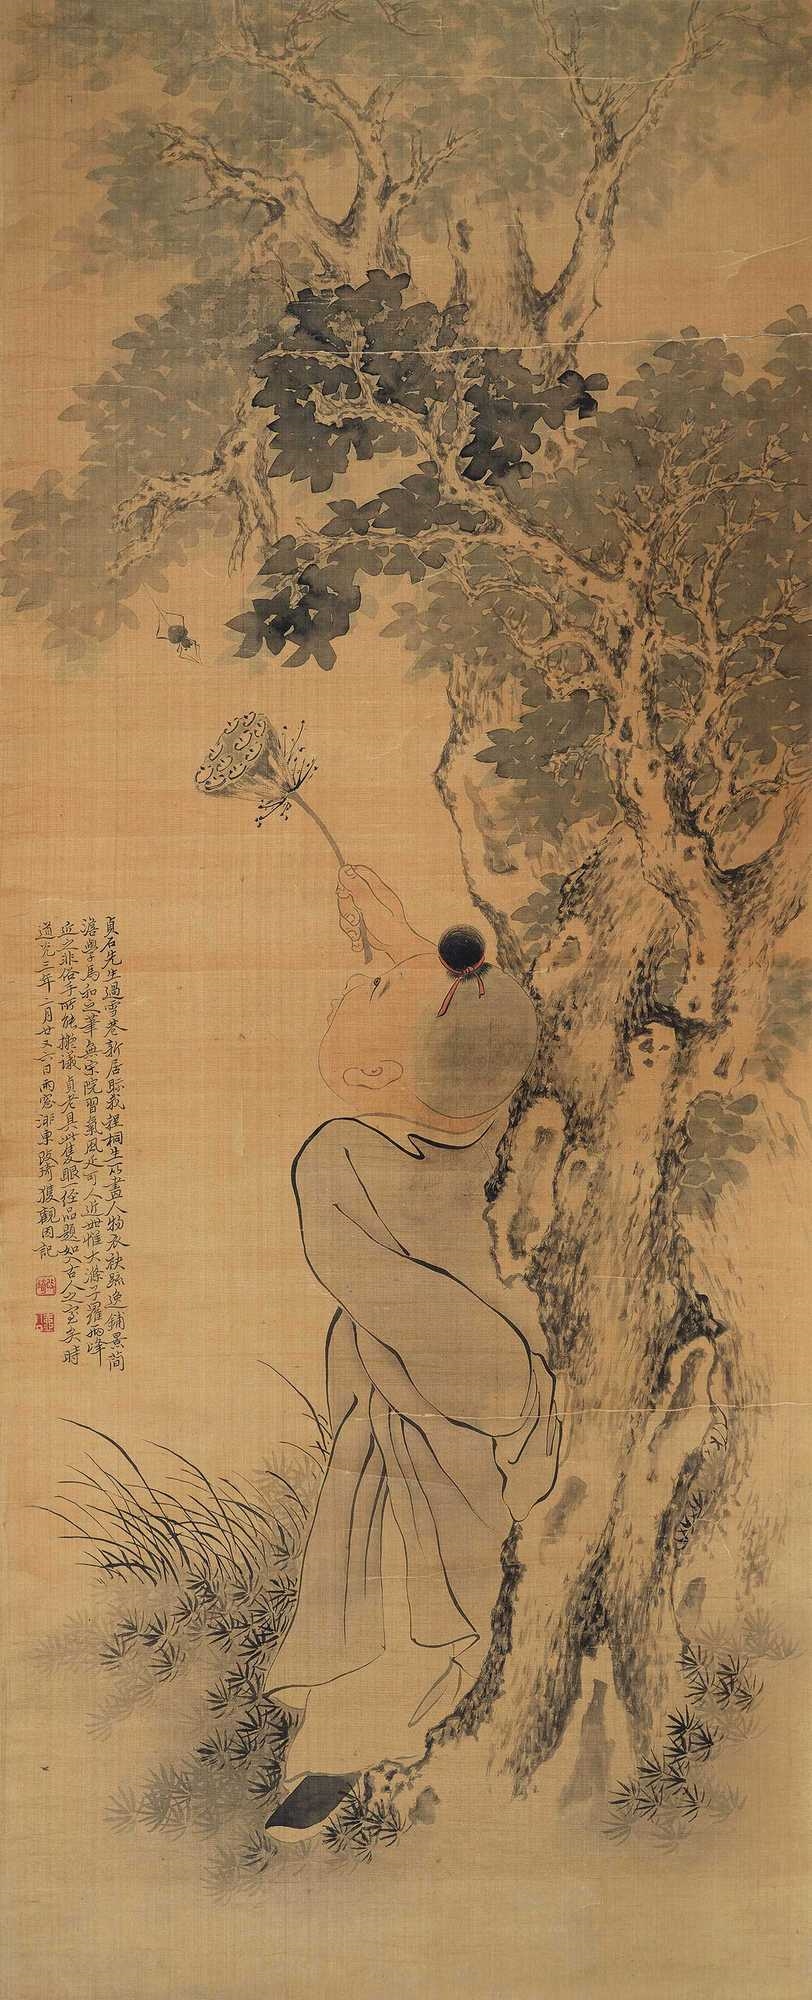 貞石先生過雪巷新居眎我程桐生所畫人物衣袂疏逸鋪景簡
澹學馬和之筆無宋院習氣風逸可人近世惟大滌子羅兩峰
近之非俗手所能擬議貞老具此隻眼一經品題如入古人之室矣時
道光三年二月廿又六日雨窓淞東改琦獲觀因記